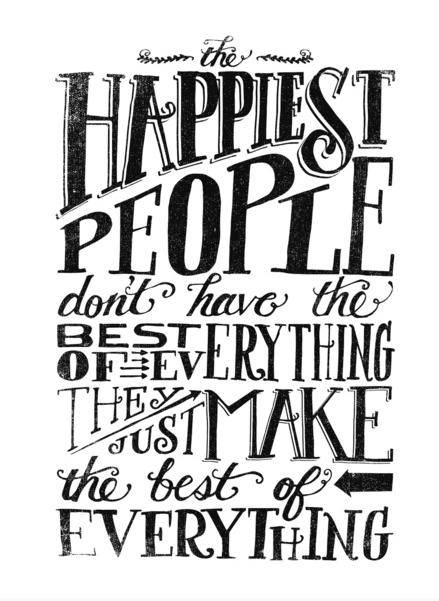 the
HAPPIEST
PEOPLE
don't have the
BEST
OF EVERYTHING
THEY
JUST MAKE
the best of
EVERYTHING